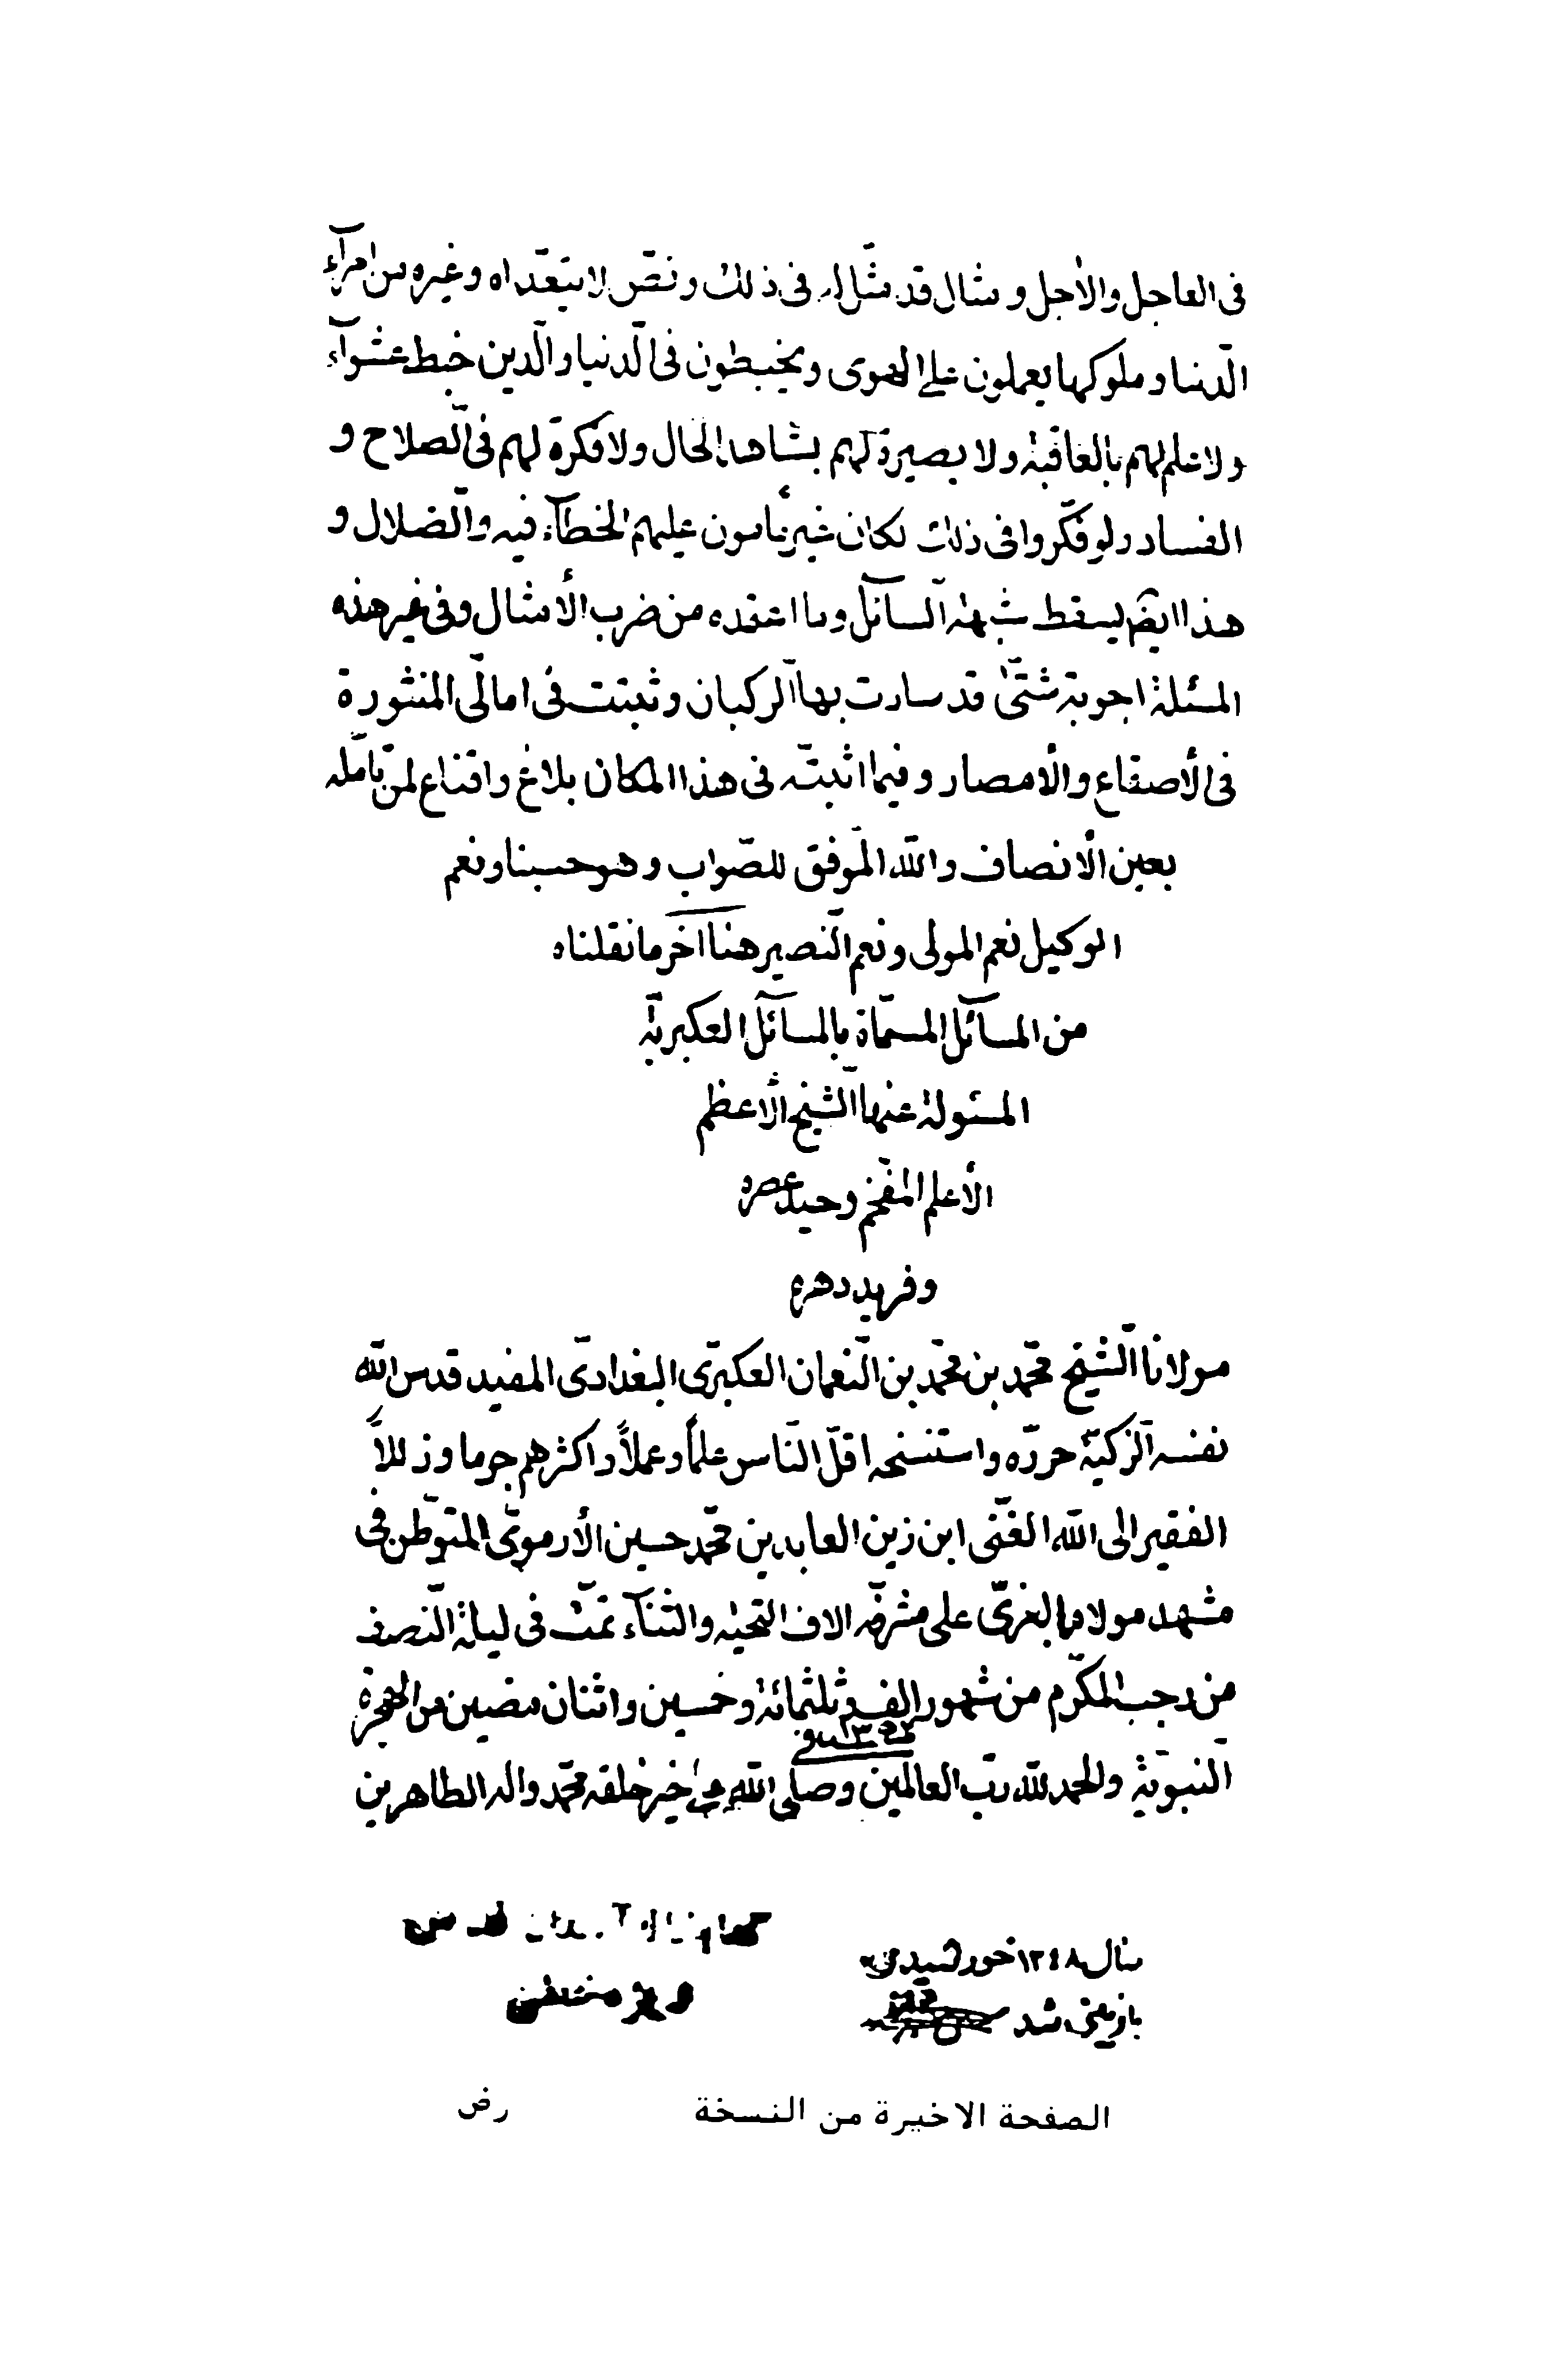 فى العاجل والاٰجل ومثال قد مثّل له فى ذلك ونصّ لا يتعّداه وغيره من امرآء
الّدنيا وملوكها يعملون على الهوى ويخبطون فى الّدنيا والّدين خبط عشوآء
ولا علم لهم بالعاقبة ولا بصيرة لهم بشاهد الحال ولا فكرة لهم فى الّصلاح و
الفساد ولو فكّروا فى ذلك لكان غير مأمون عليهم الخطآء فيه والّضلال و
هذا ايضّ يسقط شبهة الّسآئل وما اعتقده من ضرب الأمثال وفى غير هذه
المسئلة اجوبة شتىّ قد سارت بها الّركبان وثبتت فى امالّى المنثورة
فى الأصقاع والأمصار وفيما اثبتّه فى هذا المكان بلاغ واقناع لمن تأمّله
بعين الأنصاف والله المّوفق للصّواب وهو حسبنا ونعم
الوكيل نعم المولى ونعم الّنصير هنا اخر ما نقلناه
من المسآئل المسمّاة بالمسآئل العكبريّة
المسئولة عنها الّشيخ الأعظم
الأعلم المفّخم وحيد عصره
وفريد دهره
مولانا الّشيخ محّمد بن محّمد بن الّنعمان العكبرّى البغدادّى المفيد قدس الله
نفسه الّزكيّة حررّه واستنسخه اقلّ النّاس علماً وعملاً واكثرهم جرما وزللاً
الفقير الى الله الغّنى ابن زين العابدين محّمد حسين الأرموىّ المتوّطن فى
مشهد مولاه بالغرىّ على مشرفّه الاف التحيّة والثنآء تمّت فى ليلة الّنصف
من رجب المكّرم من شهور الف وثلثمائة وخمسين واثنان مضين من الهجرة
١٣٥٢ ق
الّنبوّية والحمد لله ربّ العالمين وصلى الله على خير خلقه محّمد واله الطاهرين
سال ١٣٤٨ خورشيدى
بازبينى شد
الصفحة الاخيرة من النسخة رض